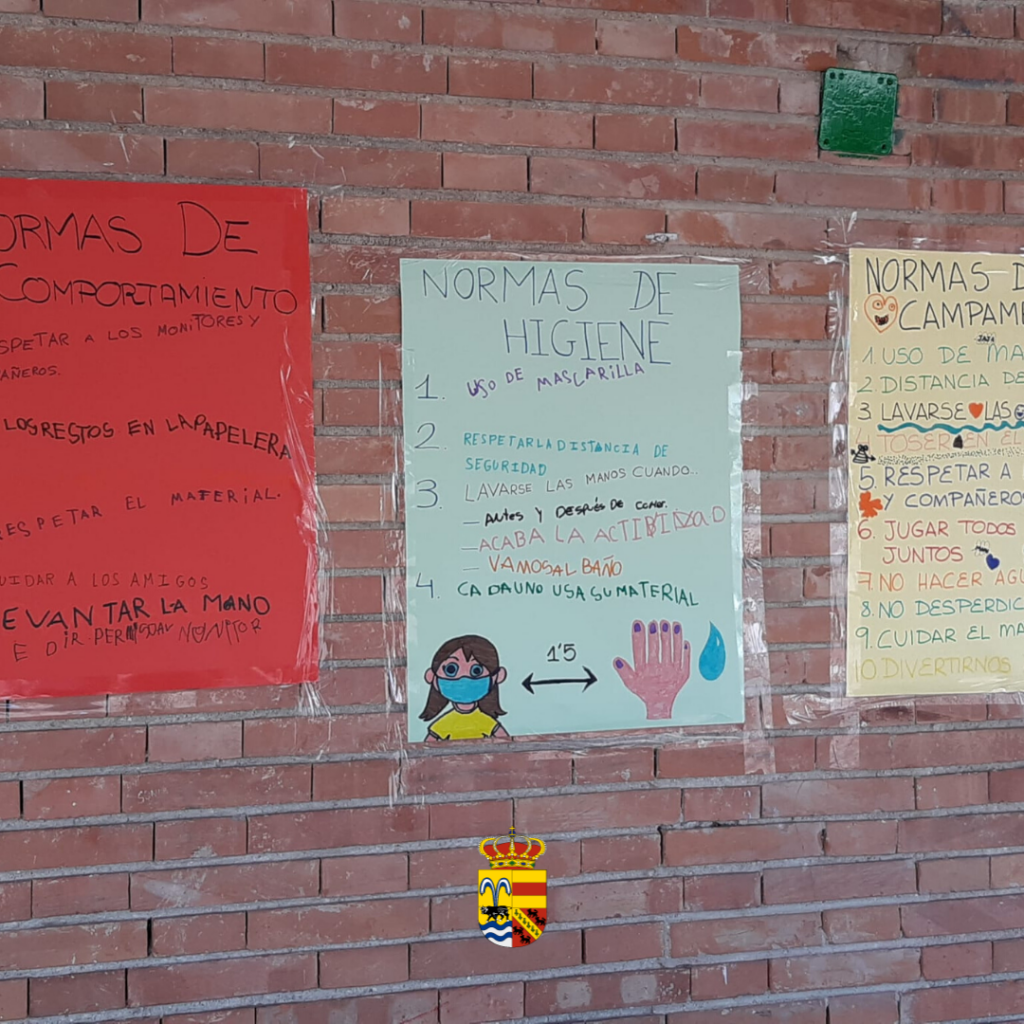 NORMAS DE
COMPORTAMIENTO
A LOS MONITORES Y
LOS RESTOS EN LA PAPELERA
RESPETAR EL MATERIAL.
A LOS AMIGOS
LEVANTAR LA MANO
NORMAS DE
HIGIENE
1. USO DE MASCARILLA
2 RESPETAR LA DISTANCIA DE
SEGURIDAD
3. LAVARSE LAS MANOS CUANDO..
– ANTES Y DESPUÉS DE COMER.
– ACABA LA ACTIBIDAD
– VAMOS AL BAÑO
4. CADA UNO USA SU MATERIAL
1'5
NORMAS
CAMPAME
1 USO DE MA
2 DISTANCIA DE
3 LAVARSE LAS
4 TOSER EN EL
5. RESPETAR A
Y COMPAÑEROS
6. JUGAR TODOS
JUNTOS
7 NO HACER AGU
8. NO DESPERDIC
9. CUIDAR EL MA
10 DIVERTIRNOS